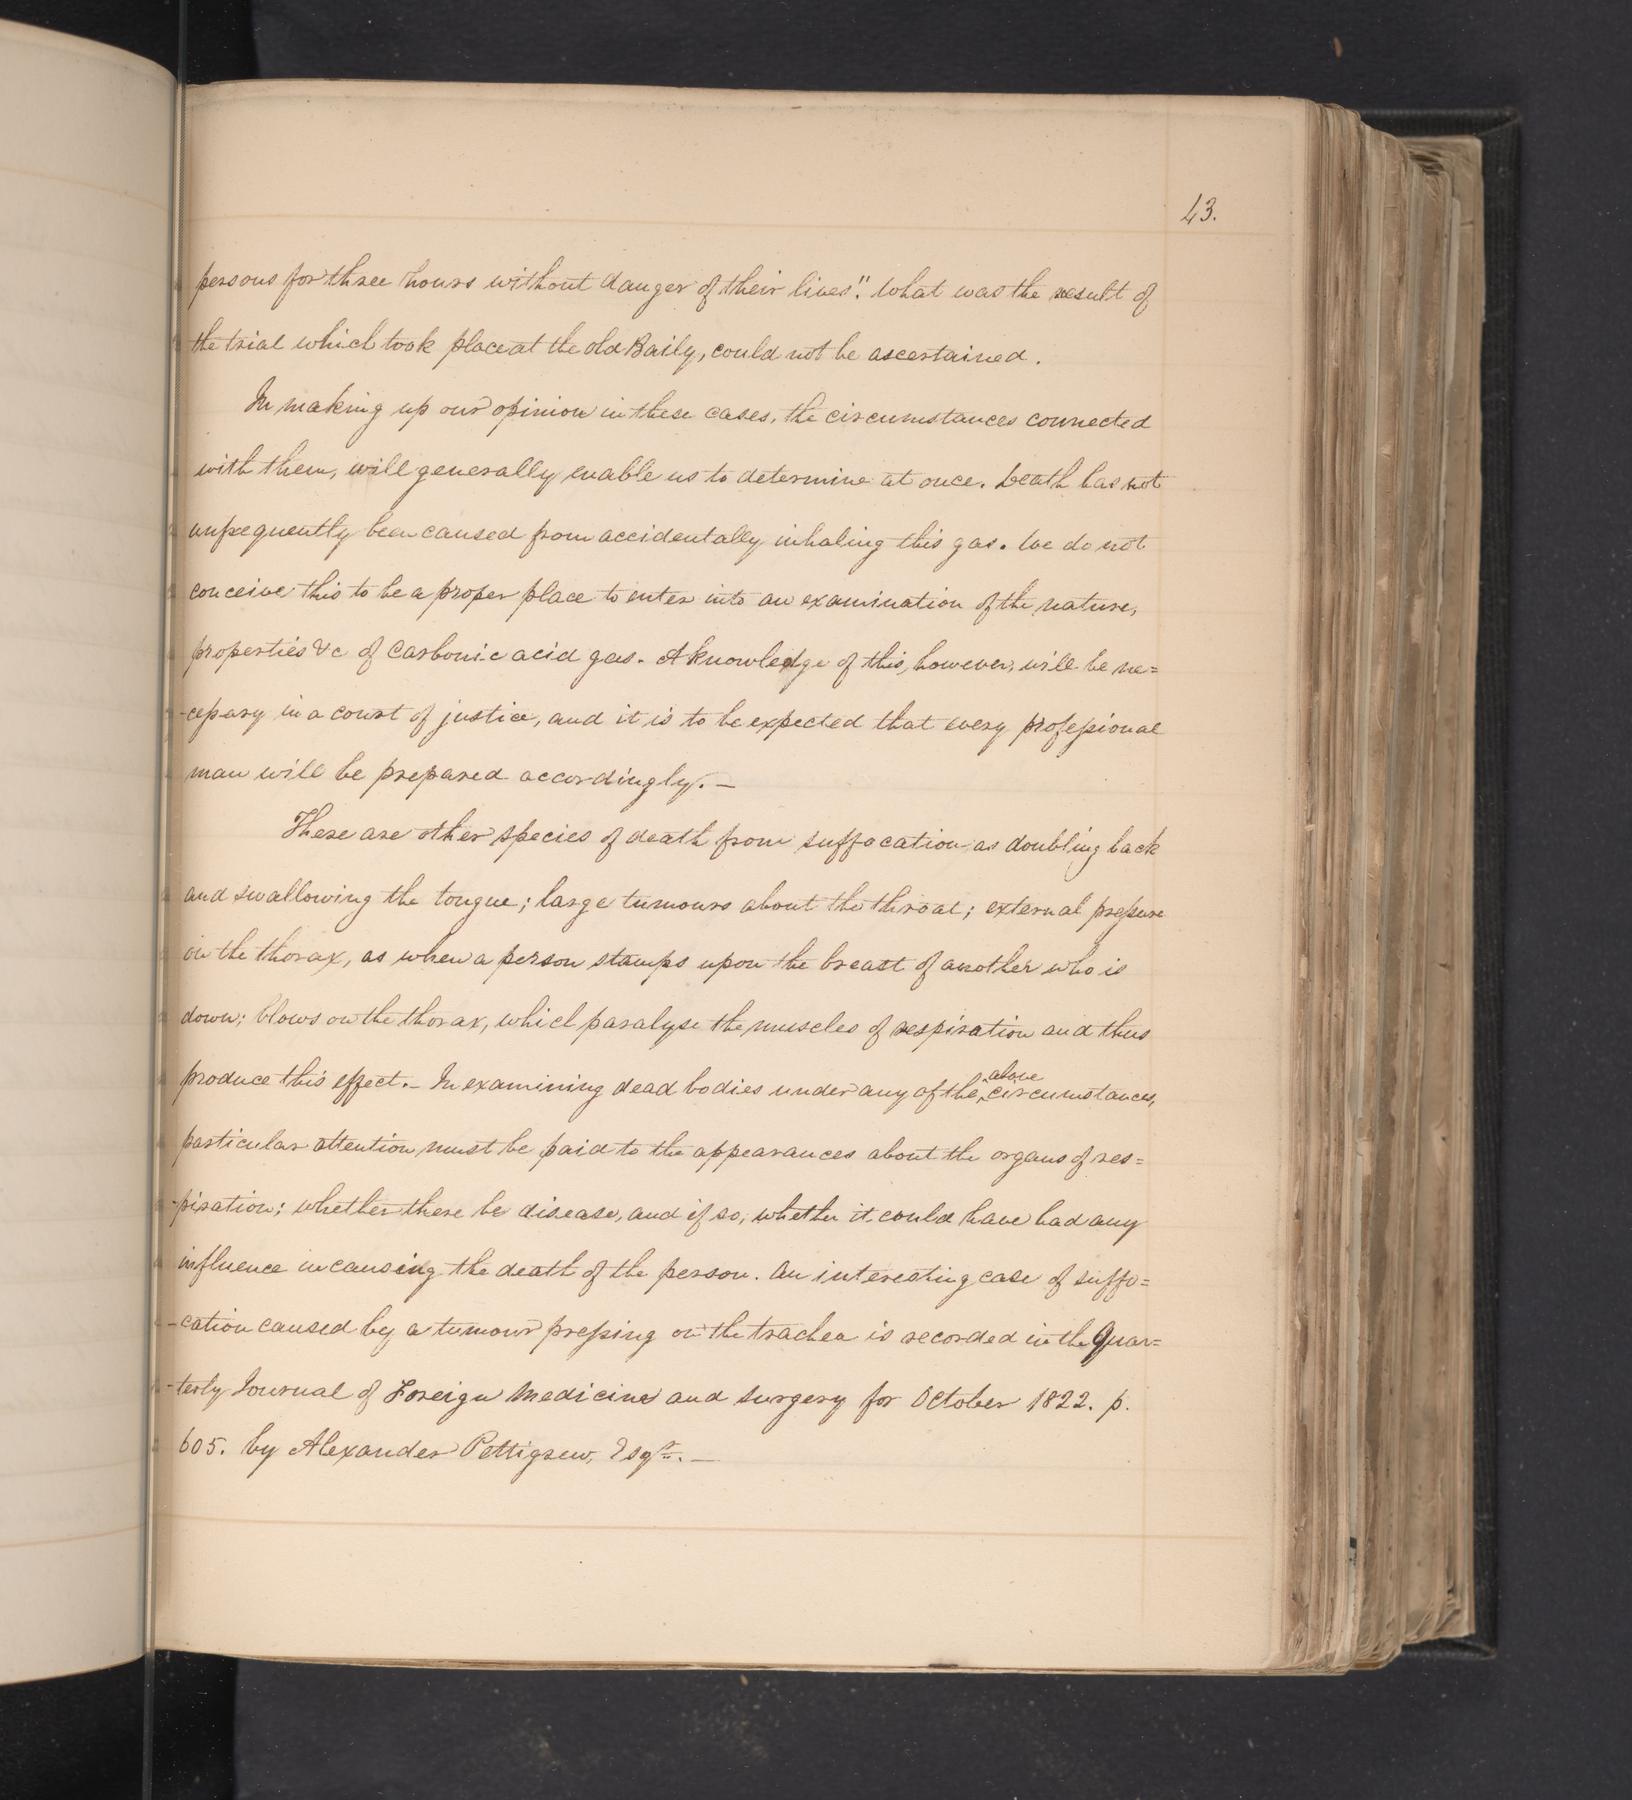 43.
persons for three hours without danger of their lives". What was the result of
the trial which took place at the old Baily, could not be ascertained.
In making up our opinion in these cases, the circumstances connected
with them, will generally enable us to determine at once. Death has not
unfrequently been caused from accidentally inhaling this gas. We do not
conceive this to be a proper place to enter into an examination of the nature,
properties &c of Carbonic acid gas. A knowledge of this, however, will be ne=
-cessary in a court of justice, and it is to be expected that every professional
man will be prepared accordingly. —
There are other species of death from suffocation as doubling back
and swallowing the tongue; large tumours about the throat; external pressure
on the thorax, as when a person stamps upon the breast of another who is
down; blows on the thorax, which paralyse the muscles of respiration and thus
produce this effect. – In examining dead bodies under any of the above circumstances,
particular attention must be paid to the appearances about the organs of res=
-piration; whether there be disease, and if so, whether it could have had any
influence in causing the death of the person. An interesting case of suffo=
-cation caused by a tumour pressing on the trachea is recorded in the Quar=
-terly Journal of Foreign Medicine and surgery for October 1822. p.
605. by Alexander Pettigrew, Esqr. —